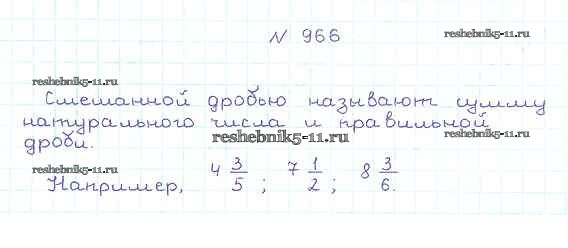 N 966
reshebnik5-11.ru
reshebnik5-11.ru
Смешанной дробью называют сумму
натурального числа и правильной
reshebnik5-11.ru
reshebnik5-11.ru
дроби.
reshebnik5-11.ru
Например, 4 3/5; 7 1/2; 8 3/6.